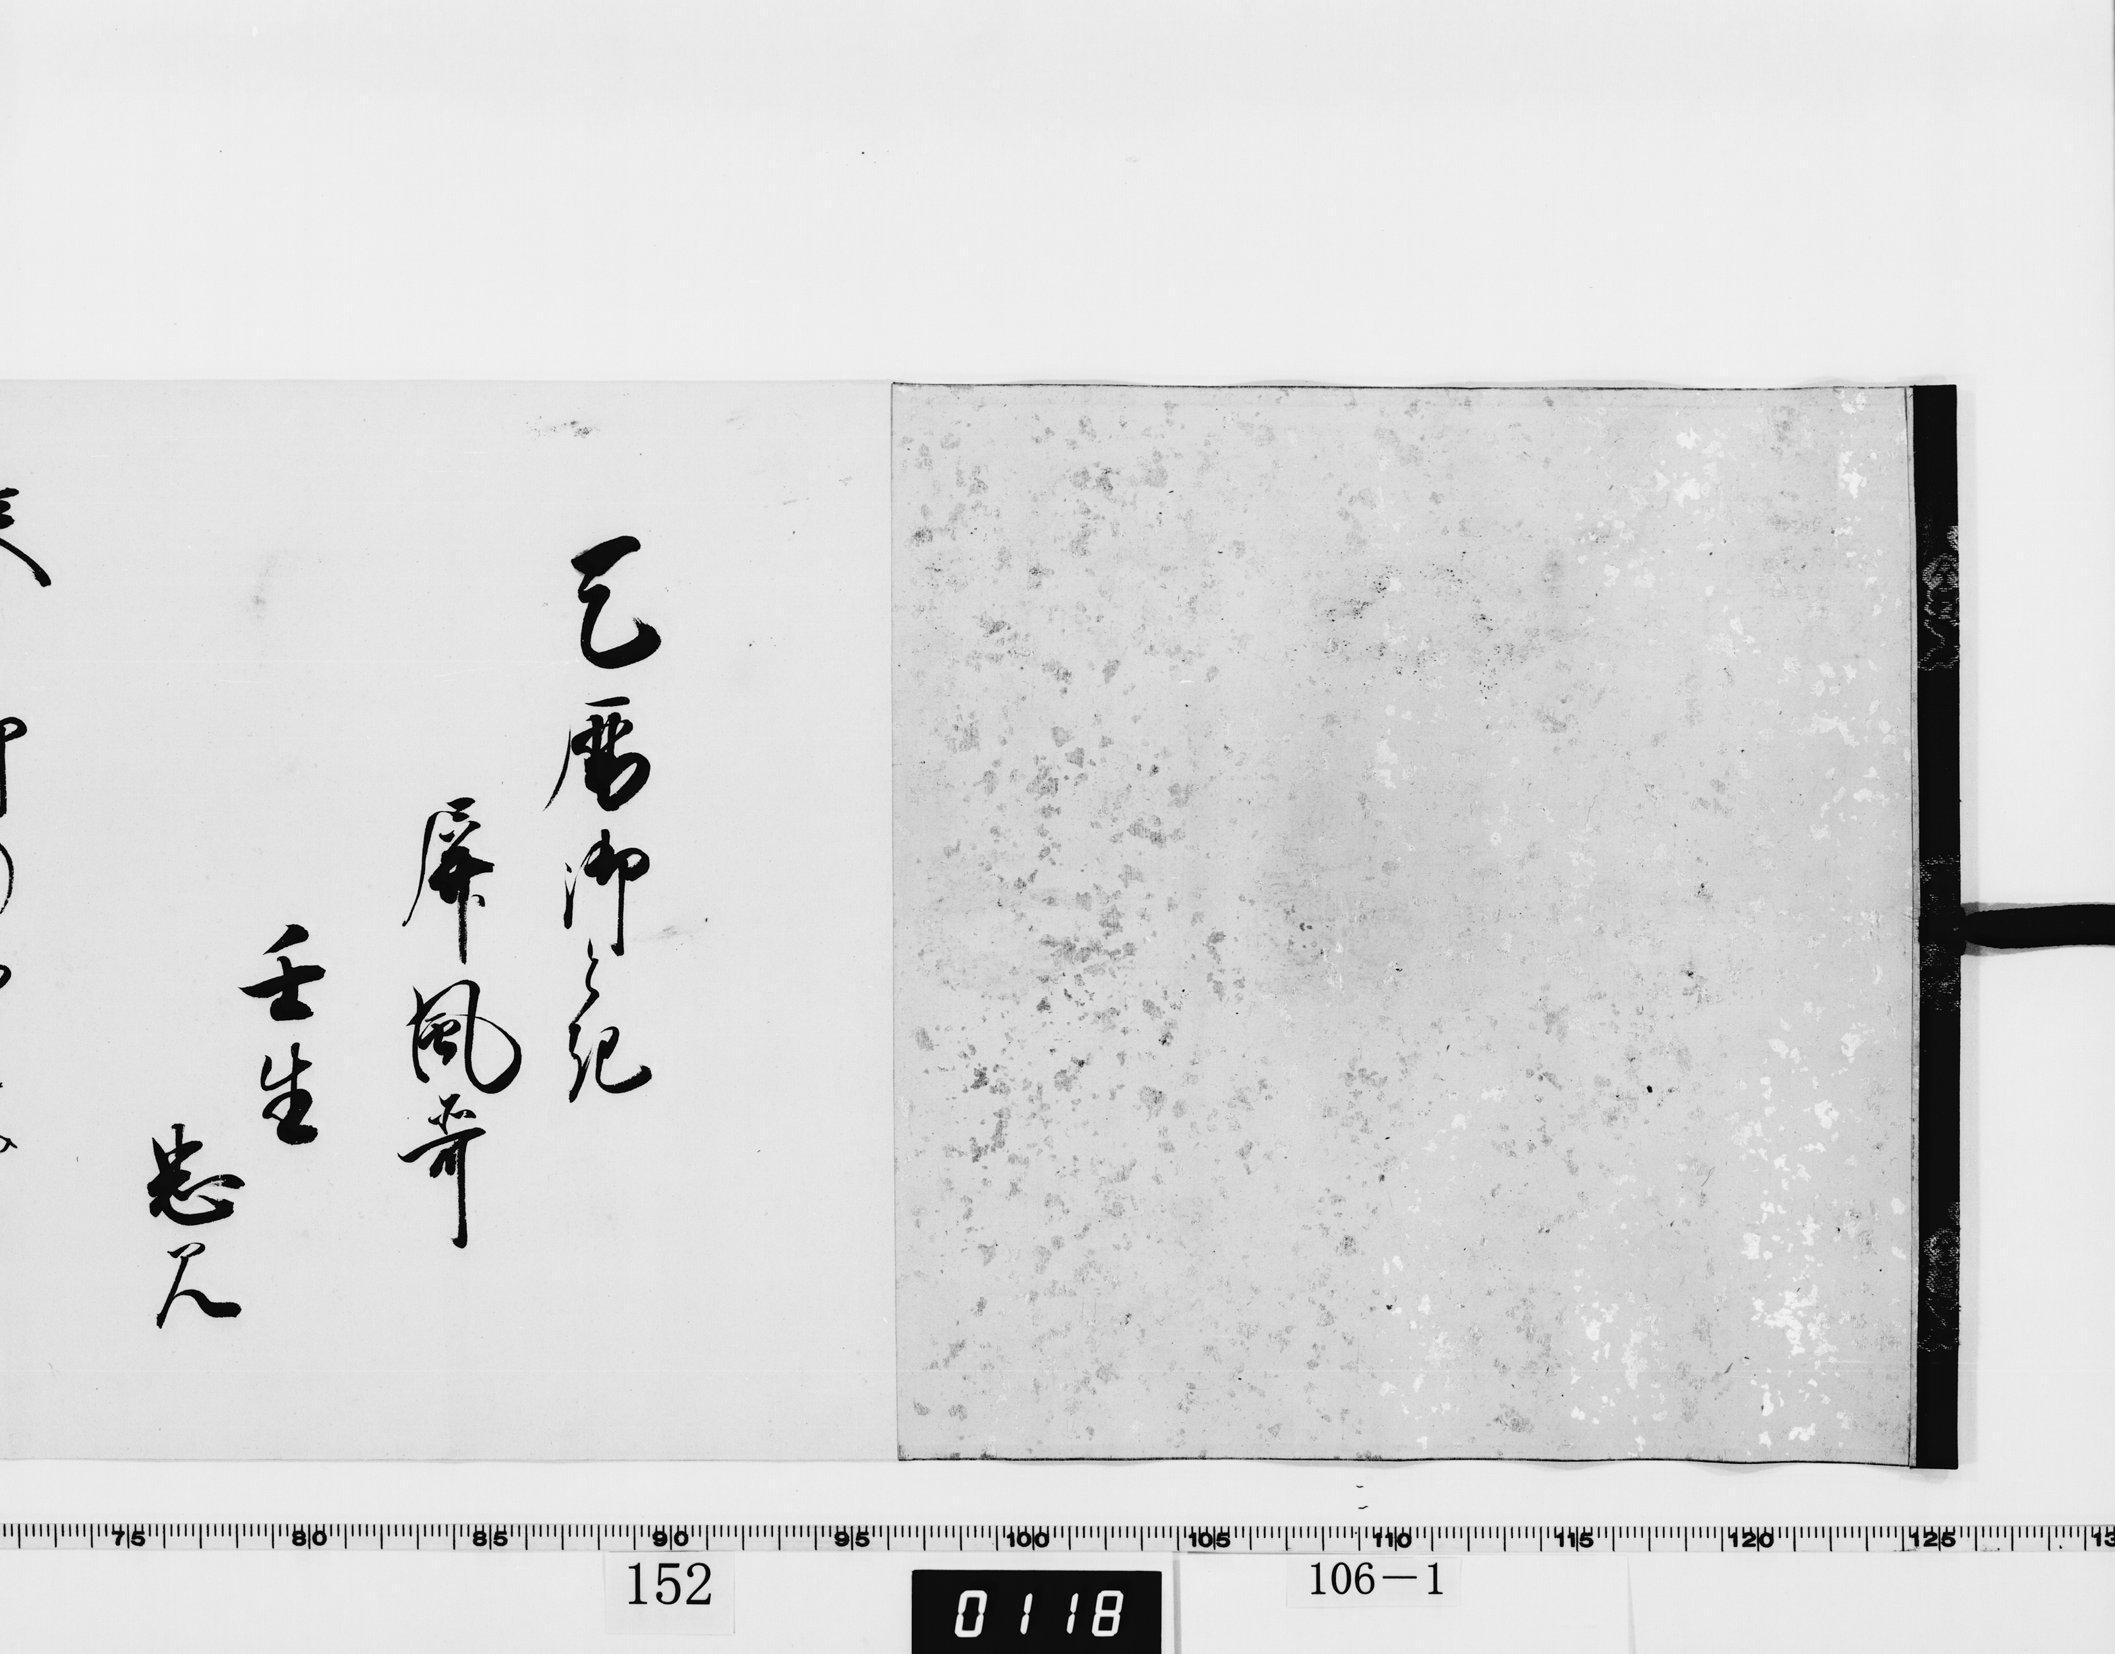 乙暦御記
屏風哥
壬生
忠見
75 80 85 90 95 100 105 110 115 120 125 13
152
0118
106-1